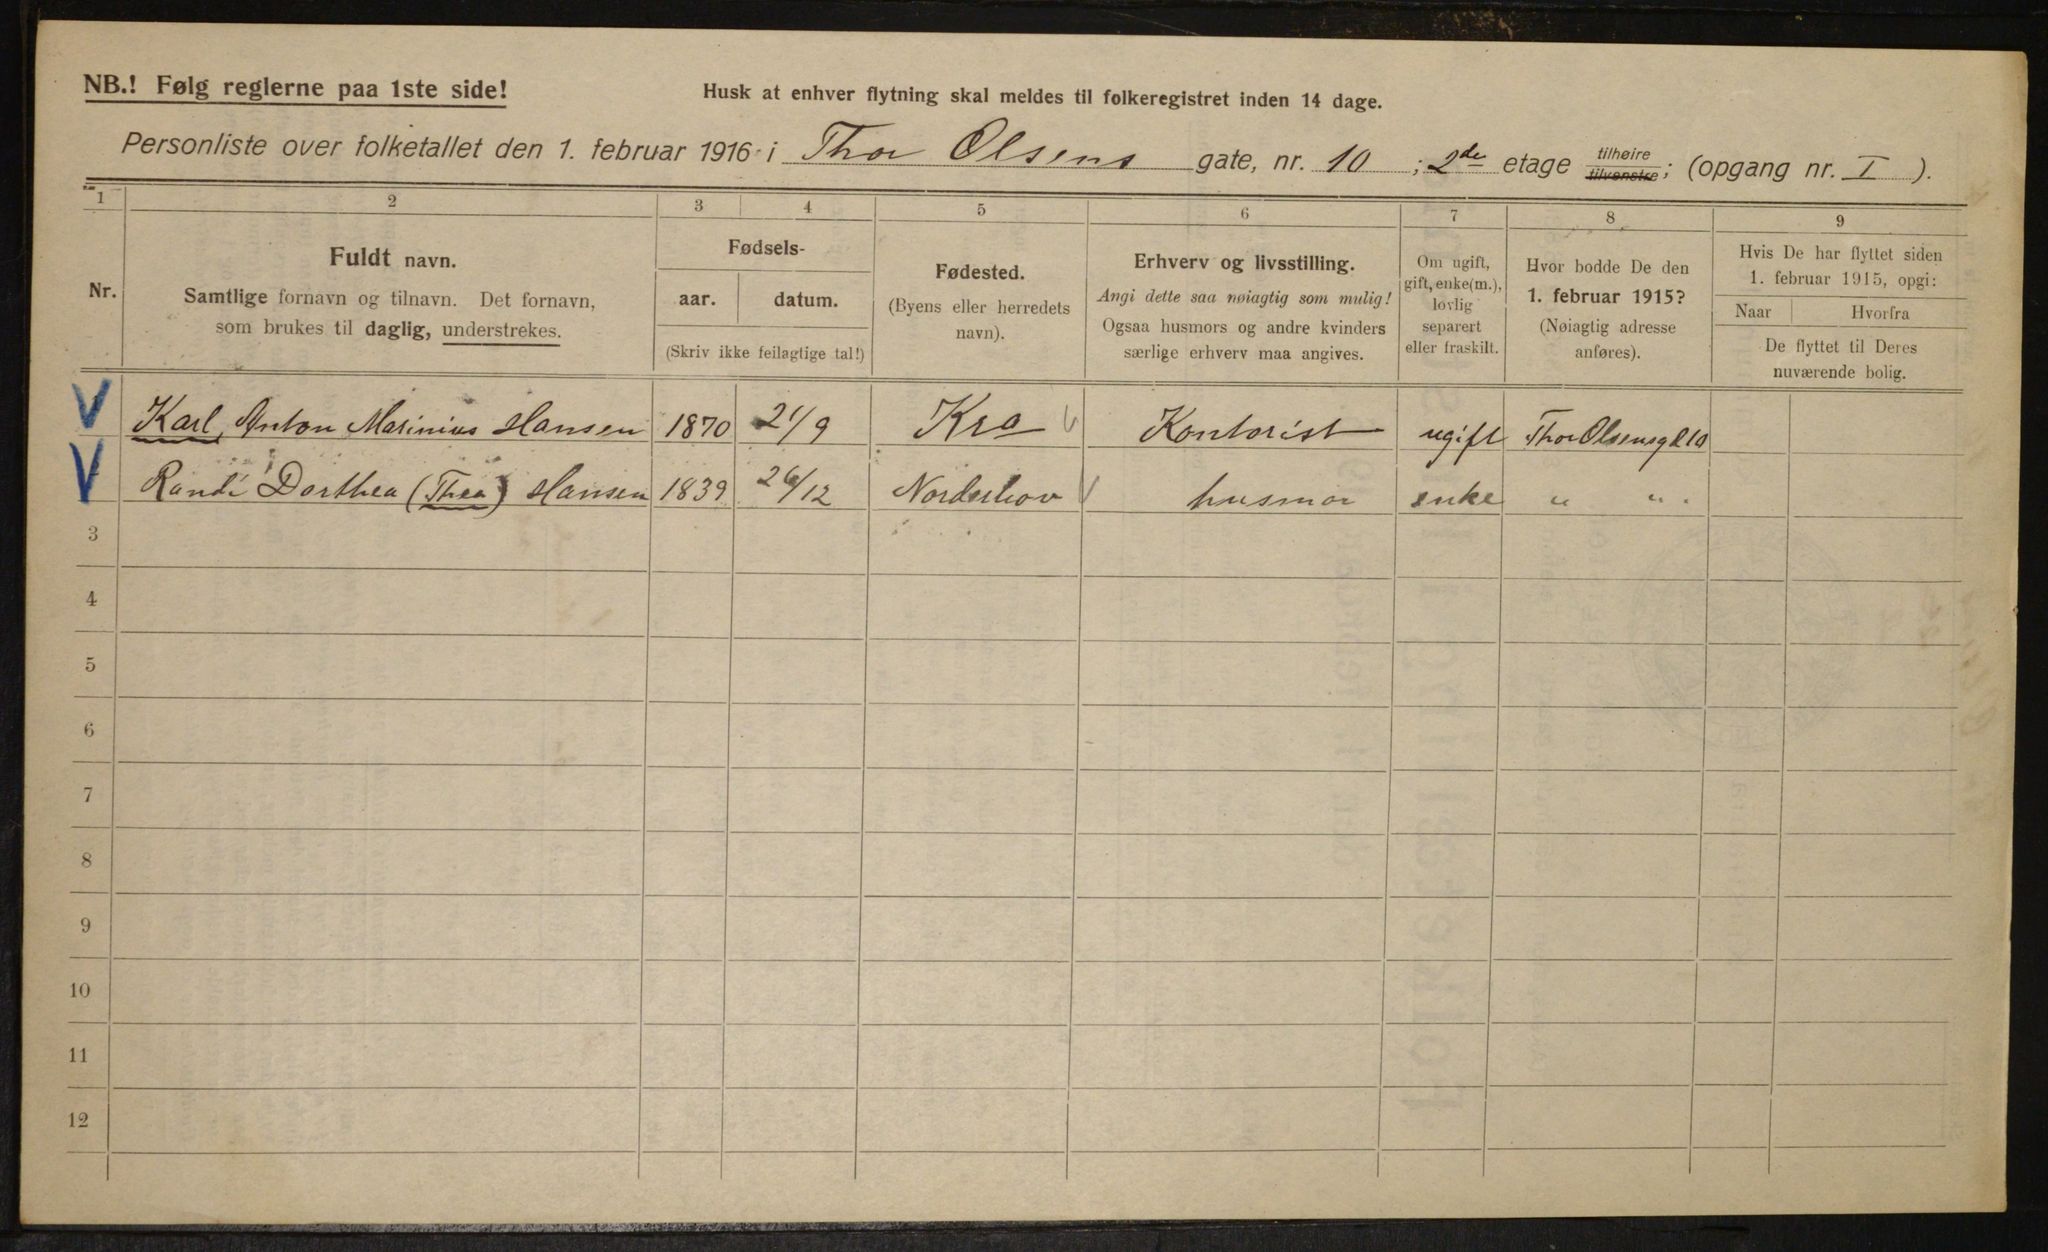 NB.! Følg reglerne paa 1ste side!
Husk at enhver flytning skal meldes til folkeregistret inden 14 dage.
Personliste over folketallet den 1. februar 1916 i Thor Olsens gate, nr. 10 ; 2de etage tilhøire tilvenstre; (opgang nr. I ).
1 2 3 4 5 6 7 8 9
Nr.
Fuldt navn.
Samtlige fornavn og tilnavn. Det fornavn,
som brukes til daglig, understrekes.
Fødsels-
aar. datum.
(Skriv ikke feilagtige tal!)
Fødested.
(Byens eller herredets
navn).
Erhverv og livsstilling.
Angi dette saa nøiagtig som mulig!
Ogsaa husmors og andre kvinders
særlige erhverv maa angives.
Om ugift,
gift, enke(m.),
lovlig
separert
eller fraskilt.
Hvor bodde De den
1. februar 1915?
(Nøiagtig adresse
anføres).
Hvis De har flyttet siden
1. februar 1915, opgi:
Naar Hvorfra
De flyttet til Deres
nuværende bolig.
Karl Anton Marinius Hansen 1870 21/9 Kra Kontorist ugift Thor Olsensg 10
Randi Dorthea (Thea) Hansen 1839 26/12 Norderhov husmor enke " "
3
4
5
6
7
8
9
10
11
12